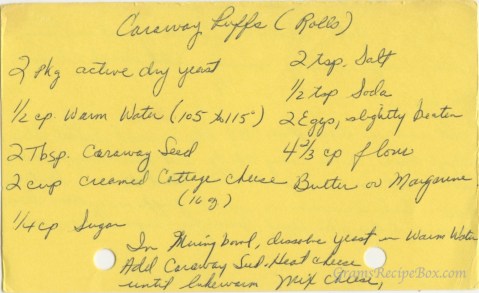 Caraway Puffs (Rolls)
2 pkg active dry yeast
1/2 cp. Warm Water (105 to 115°)
2 Tbsp. Caraway Seed
2 cup creamed Cottage cheese
(16 oz)
1/4 cp Sugar
2 tsp. Salt
1/2 tsp Soda
2 Eggs, slightly beaten
4 2/3 cp flour
Butter or Margarine
In Mixing bowl, dissolve yeast in Warm Water
Add Caraway Seed. Heat cheese
until lukewarm Mix cheese,
GramsRecipeBox.com